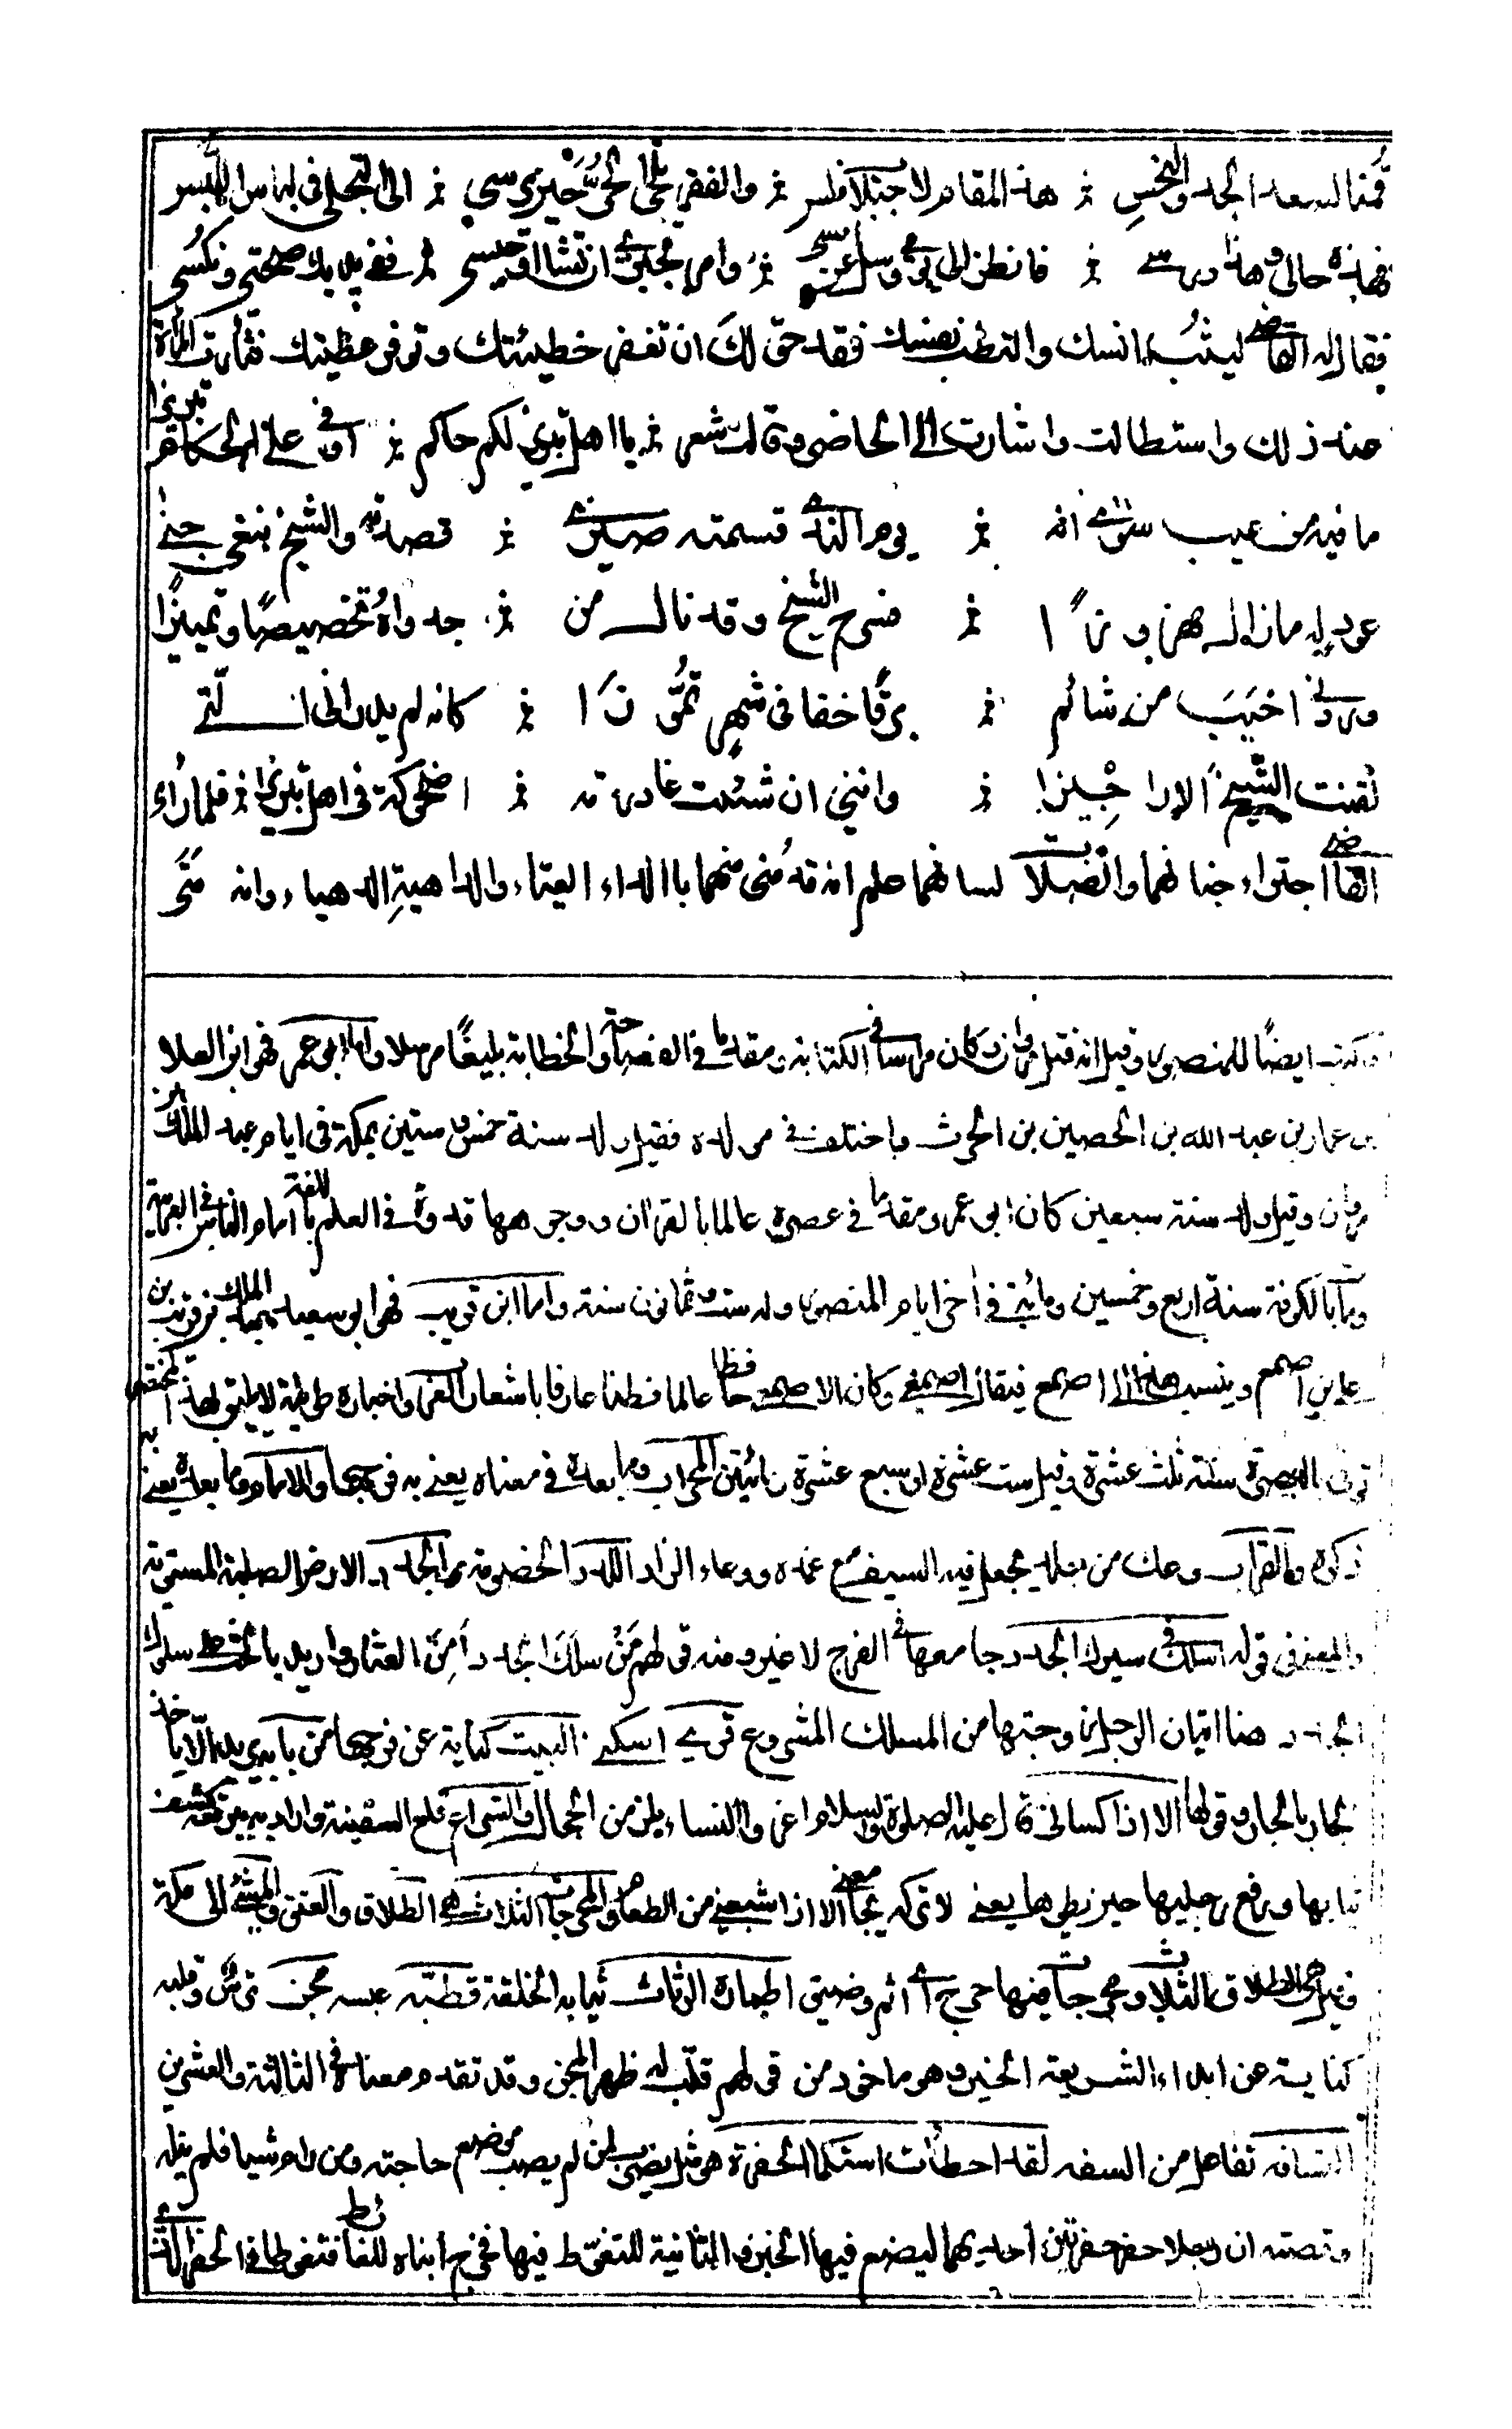 فمذ السعد الجد والنحس ؞ هذا المقام لا اجتلاء فلس ؞ والفقر يلجي الحر حين يرسي ؞ الى التجلي في لباس اللبس
فهذه حالي وهذا درسي ؞ فانظر الى يومي وسل عن امسي ؞ وامر بجبري ان تشا او حبسي ؞ ففي يديك صحتي ونكسي
فقال له القاضي ليثب انسك والتطب نفسك فقد حق لك ان تغفر خطيئتك وتوفر عطيتك فثارت المرأة
عند ذلك واستطالت واشارت الى الحاضرين وقالت شعر ؞ يا اهل تبريز لكم حاكم ؞ اوفى على الحكام تبريزا
ما فيه من عيب سوى انه ؞ يوم الندى قسمته ضيزى ؞ قصدته والشيخ نبغي جنى
عود له ما زال مهزوزا ؞ فسرح الشيخ وقد نال من ؞ جدواه تخصيصا وتمييزا
وردني اخيب من شائم ؞ برقا خفا في شهر تموزا ؞ كانه لم يدر اني التي
لقنت الشيخ الاراجيزا ؞ وانني ان شئت غادرته ؞ اضحوكة في اهل تبريزا ؞ فلما رأى
القاضي اجتراء جنانهما وانصلات لسانهما علم انه قد مني منهما بالداء العياء والداهية الدهياء وانه متى
وكتب ايضا للمنصور وقيل انه قتل وكان رأسا في الكتابة ومقدما في الفصاحة والخطابة بليغا مرسلا واما ابو عمرو فهو ابو العلا
بن عمار بن عبد الله بن الحصين بن الحرث واختلف في مولده فقيل ولد سنة خمس وستين بمكة في ايام عبد الملك بن
مروان وقيل ولد سنة سبعين كان ابو عمرو مقدما في عصره عالما بالقرآن ووجوهها قدوة في العلم باللغة امام الناس في العربية
ومات بالكوفة سنة اربع وخمسين ومائة في آخر ايام المنصور وله ست وثمانون سنة واما ابن قريب فهو ابو سعيد عبد الملك بن قريب بن
علي بن اصمع وينسب الى اصمع فيقال اصمعي وكان الاصمعي حافظا عالما فطنا عارفا باشعار العرب واخباره طويلة لا يليق لهذا المختصر
توفي بالبصرة سنة ثلث عشرة وقيل ست عشرة او سبع عشرة ومائتين المحراب وما بعده في معناه يعني به فرجها والامام وما بعده يعني به
ذكره والقراب وعاء من جلد يجعل فيه السيف مع غمده ووعاء الزاد اللدد الخصومة الجدد الارض الصلبة المستوية
والمعنى في قوله اسلك في سيرك الجدد جامعها في الفرج لا غير ومنه قولهم من سلك الجدد أمن العثار واريد بالخط سلوك
الجدد هنا اتيان الرجل زوجتها من المسلك المشروع قوله اسكن البيت كناية عن فرجها من بابه يريد الا ياخذ
الجار بالجار وقولها الا اذا كساني قال عليه الصلوة والسلام اعروا النساء يلزمن الحجال والشراع قلع السفينة واراد به يرفعه كشف
ثيابها ورفع رجليها حين يطؤها يعني لا تتركه يجامعني الا اذا اشبعني من الطعام والمحرجات الثلاث هي الطلاق والعتق والمشي الى مكة
وقيل هي الطلاق الثلاث ومحرجات فيها حرج اي اثم وضيق اطماره الرثاث ثيابه الخلقة قطبه عبسه مجن ترس وقلبه
كناية عن ابداء الشر بعد الخير وهو ماخوذ من قولهم قلب له ظهر المجن وقد تقدم معناه في الثالثة والعشرين
التسافه تفاعل من السفه لقد اخطأت استكما الحفرة هو مثل يضرب لمن لم يصب موضع حاجته ومن رام شيئا فلم ينله
وقصته ان رجلا حفر حفرتين احديهما ليضع فيها الخبز والثانية للتغوط فيها فخرج ابناه للغائط فتغوطا في الحفرة التي